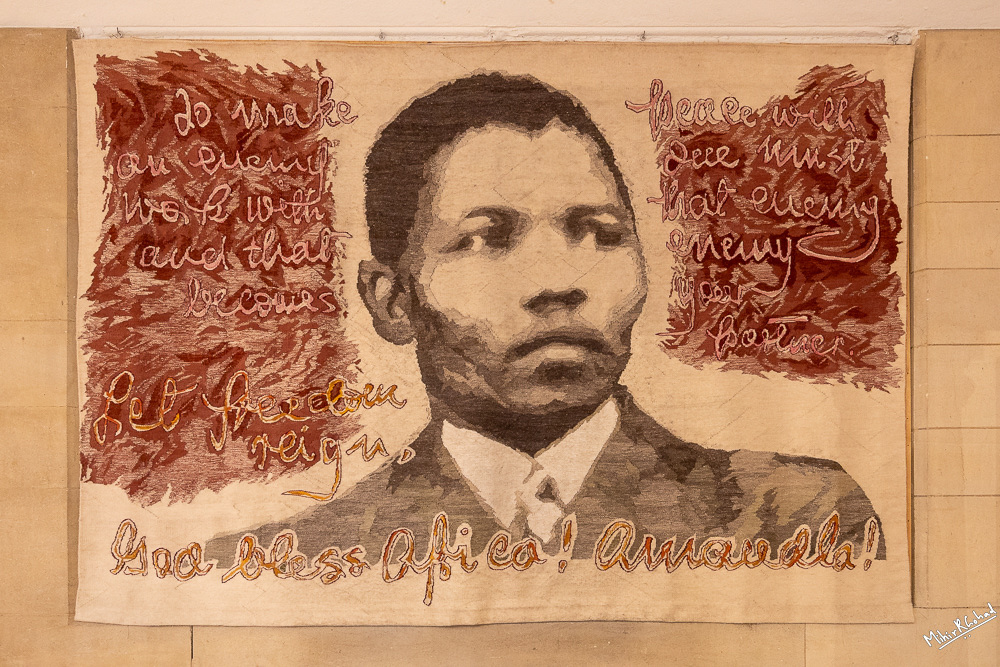 To make peace with
an enemy one must
work with that enemy
and that enemy
becomes your
partner.
Let freedom
reign,
God bless Africa! Amandla!
Mihir Khohad